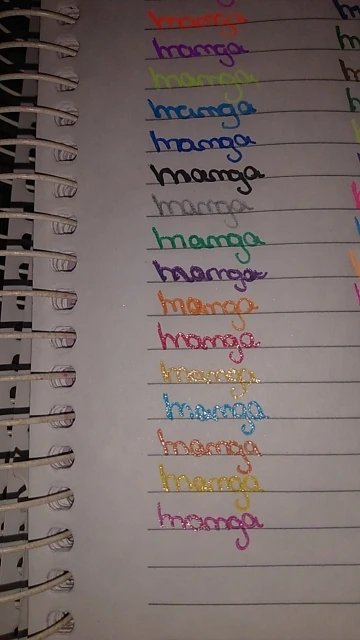 manga
manga
manga
manga
manga
manga
manga
manga
manga
manga
manga
manga
manga
manga
manga
manga